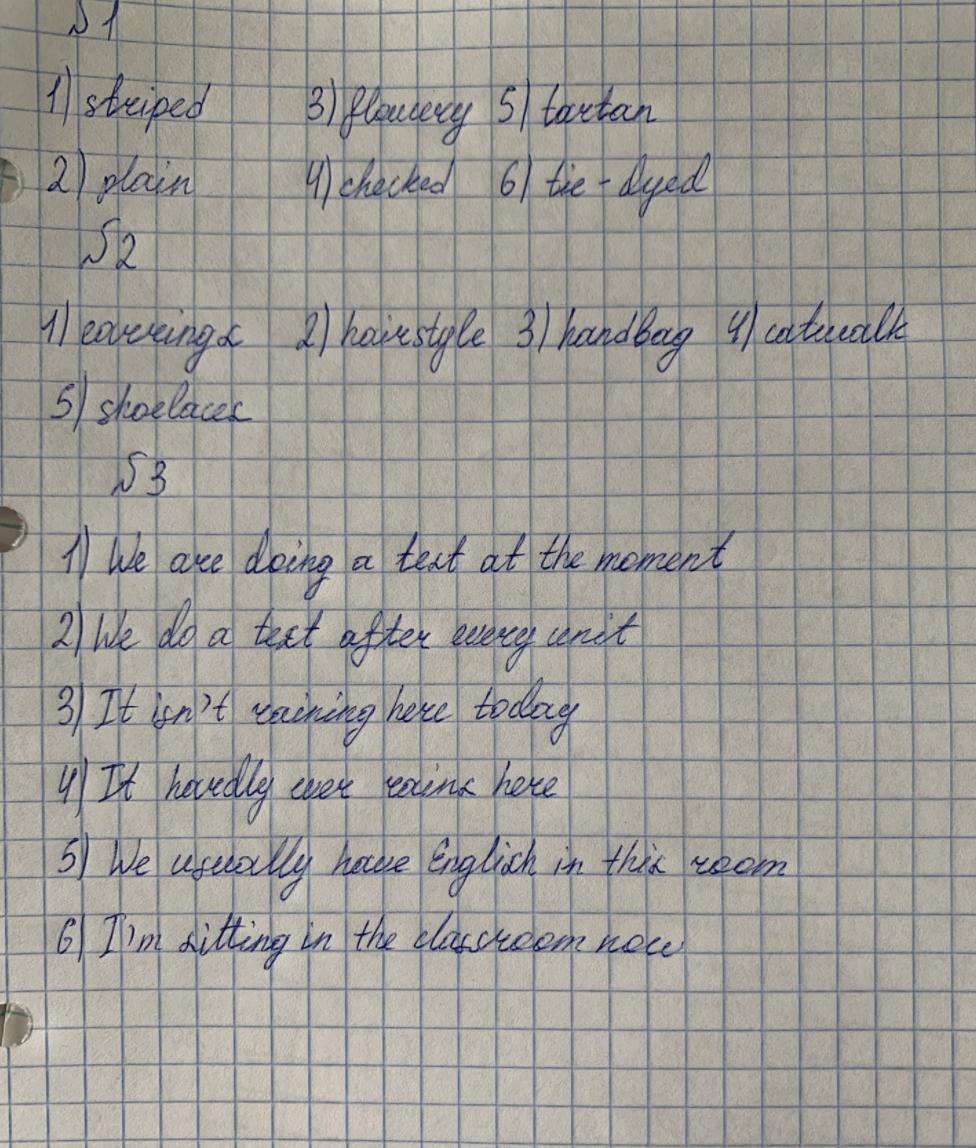 №1
1) striped 3) flowery 5) tartan
2) plain 4) checked 6) tie-dyed
№2
1) earrings 2) hairstyle 3) handbag 4) catwalk
5) shoelaces
№3
1) We are doing a test at the moment
2) We do a test after every unit
3) It isn't raining here today
4) It hardly ever rains here
5) We usually have English in this room
6) I'm sitting in the classroom now